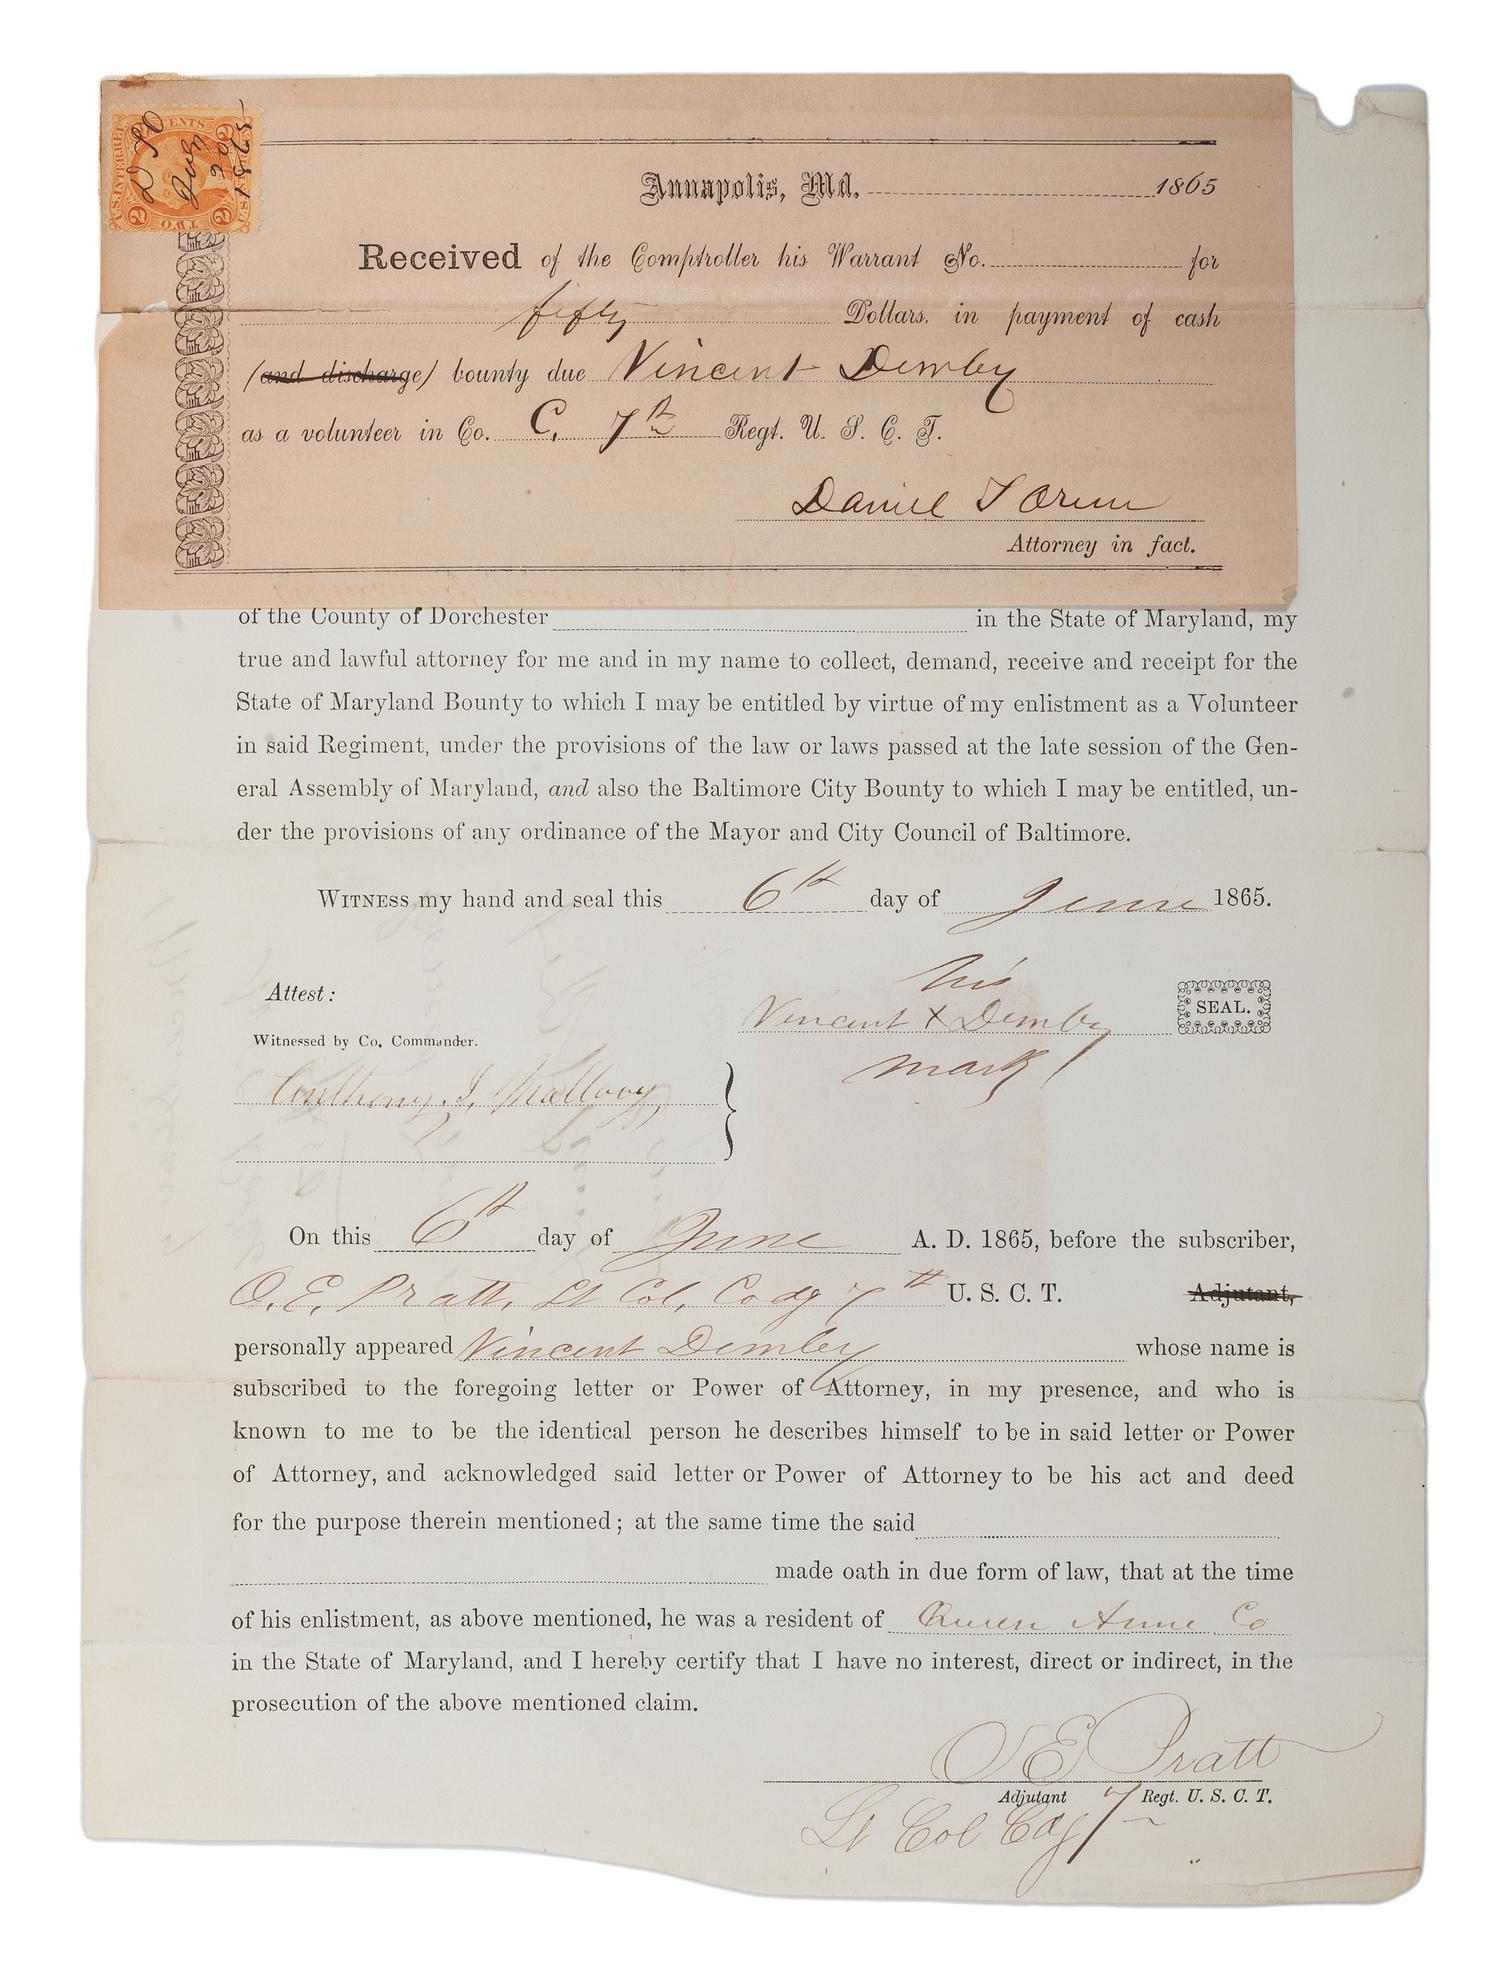 U.S. INTER. REV. TWO CENTS 2 2
D T O
Aug
29
1865
Annapolis, Md. 1865
Received of the Comptroller his Warrant No. for
fifty Dollars. in payment of cash
(and discharge) bounty due Vincent Demby
as a volunteer in Co. C. 7th Regt. U. S. C. T.
Daniel T Orem
Attorney in fact.
of the County of Dorchester in the State of Maryland, my
true and lawful attorney for me and in my name to collect, demand, receive and receipt for the
State of Maryland Bounty to which I may be entitled by virtue of my enlistment as a Volunteer
in said Regiment, under the provisions of the law or laws passed at the late session of the Gen-
eral Assembly of Maryland, and also the Baltimore City Bounty to which I may be entitled, un-
der the provisions of any ordinance of the Mayor and City Council of Baltimore.
WITNESS my hand and seal this 6th day of June 1865.
Attest:
his
Vincent X Demby SEAL.
mark
Witnessed by Co. Commander.
Anthony J. Mallory
On this 6th day of June A. D. 1865, before the subscriber,
O. E. Pratt, Lt Col, Comdg 7th U. S. C. T. Adjutant,
personally appeared Vincent Demby whose name is
subscribed to the foregoing letter or Power of Attorney, in my presence, and who is
known to me to be the identical person he describes himself to be in said letter or Power
of Attorney, and acknowledged said letter or Power of Attorney to be his act and deed
for the purpose therein mentioned; at the same time the said
made oath in due form of law, that at the time
of his enlistment, as above mentioned, he was a resident of Queen Anne Co
in the State of Maryland, and I hereby certify that I have no interest, direct or indirect, in the
prosecution of the above mentioned claim.
O E Pratt
Adjutant 7 Regt. U. S. C. T.
Lt Col Cdg